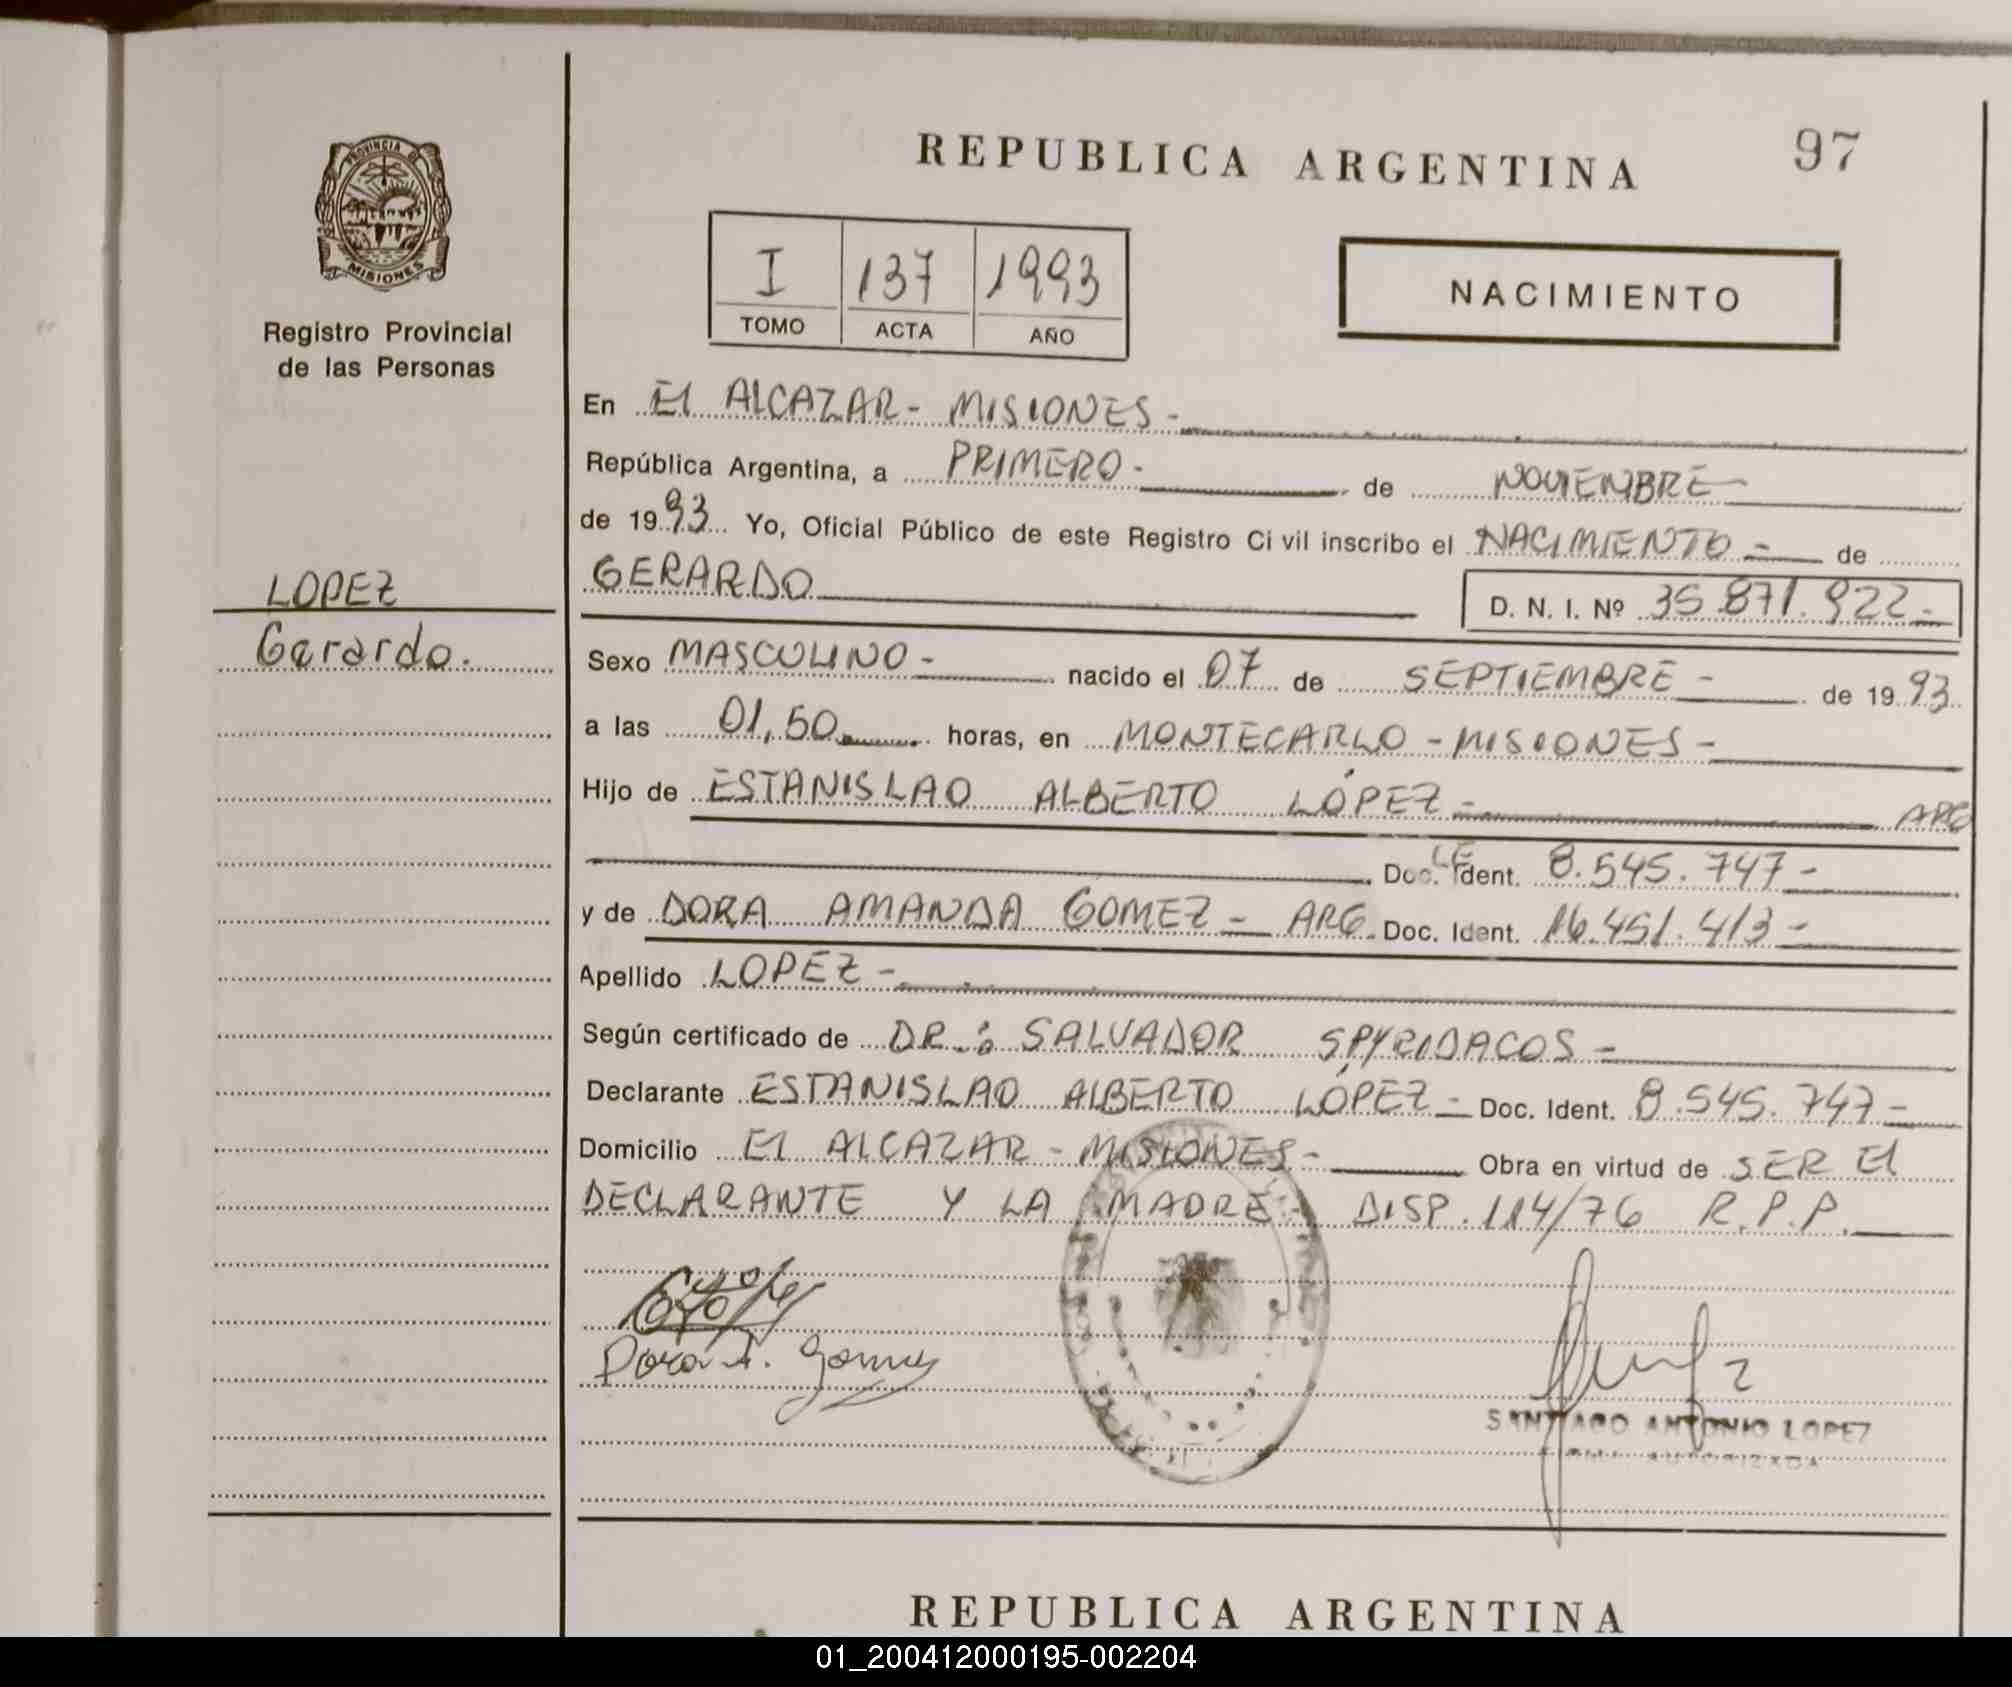 REPUBLICA ARGENTINA
97
PROVINCIA DE
MISIONES
Registro Provincial
de las Personas
I 137 1993
TOMO ACTA AÑO
NACIMIENTO
En El ALCAZAR - MISIONES -
República Argentina, a PRIMERO - de NOVIEMBRE
de 1993 Yo, Oficial Público de este Registro Civil inscribo el NACIMIENTO - de
GERARDO D. N. I. Nº 35.871.922 -
LOPEZ
Gerardo.
Sexo MASCULINO - nacido el 07 de SEPTIEMBRE - de 1993
a las 01,50 horas, en MONTECARLO - MISIONES -
Hijo de ESTANISLAO ALBERTO LÓPEZ - ARG
Doc. LE Ident. 8.545.747 -
y de DORA AMANDA GOMEZ - ARG. Doc. Ident. 16.451.413 -
Apellido LOPEZ -
Según certificado de DR.: SALVADOR SPYRIDACOS -
Declarante ESTANISLAO ALBERTO LÓPEZ - Doc. Ident. 8.545.747 -
Domicilio El ALCAZAR - MISIONES - Obra en virtud de SER El
DECLARANTE Y LA MADRE - DISP. 114/76 R.P.P.
Dora A. Gomez
SANTIAGO ANTONIO LOPEZ
REPUBLICA ARGENTINA
01_200412000195-002204